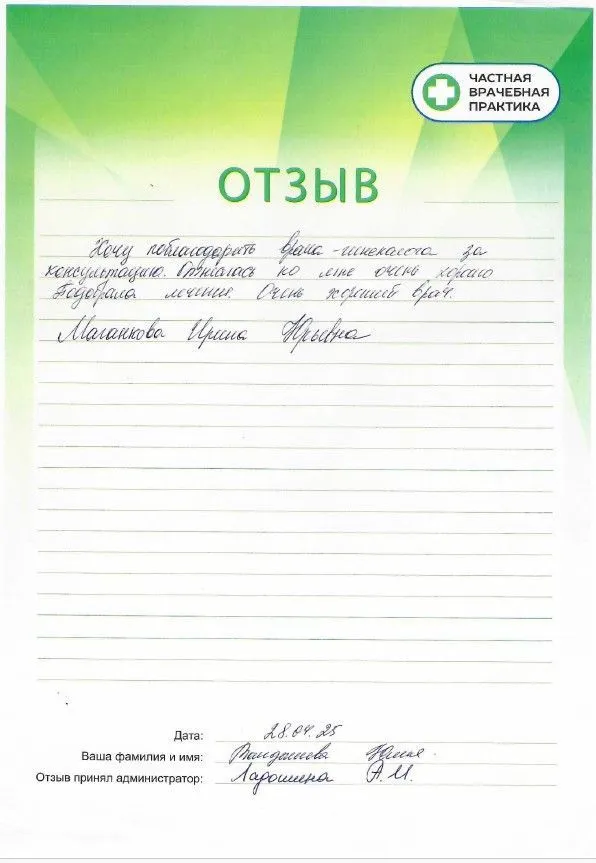 ЧАСТНАЯ
ВРАЧЕБНАЯ
ПРАКТИКА
ОТЗЫВ
Хочу поблагодарить врача-гинеколога за
консультацию. Отнеслась ко мне очень хорошо
Подобрала лечение. Очень хороший врач.
Маганкова Ирина Юрьевна
Дата: 28.04.25
Ваша фамилия и имя: Юлия
Отзыв принял администратор: Ладошина А.И.